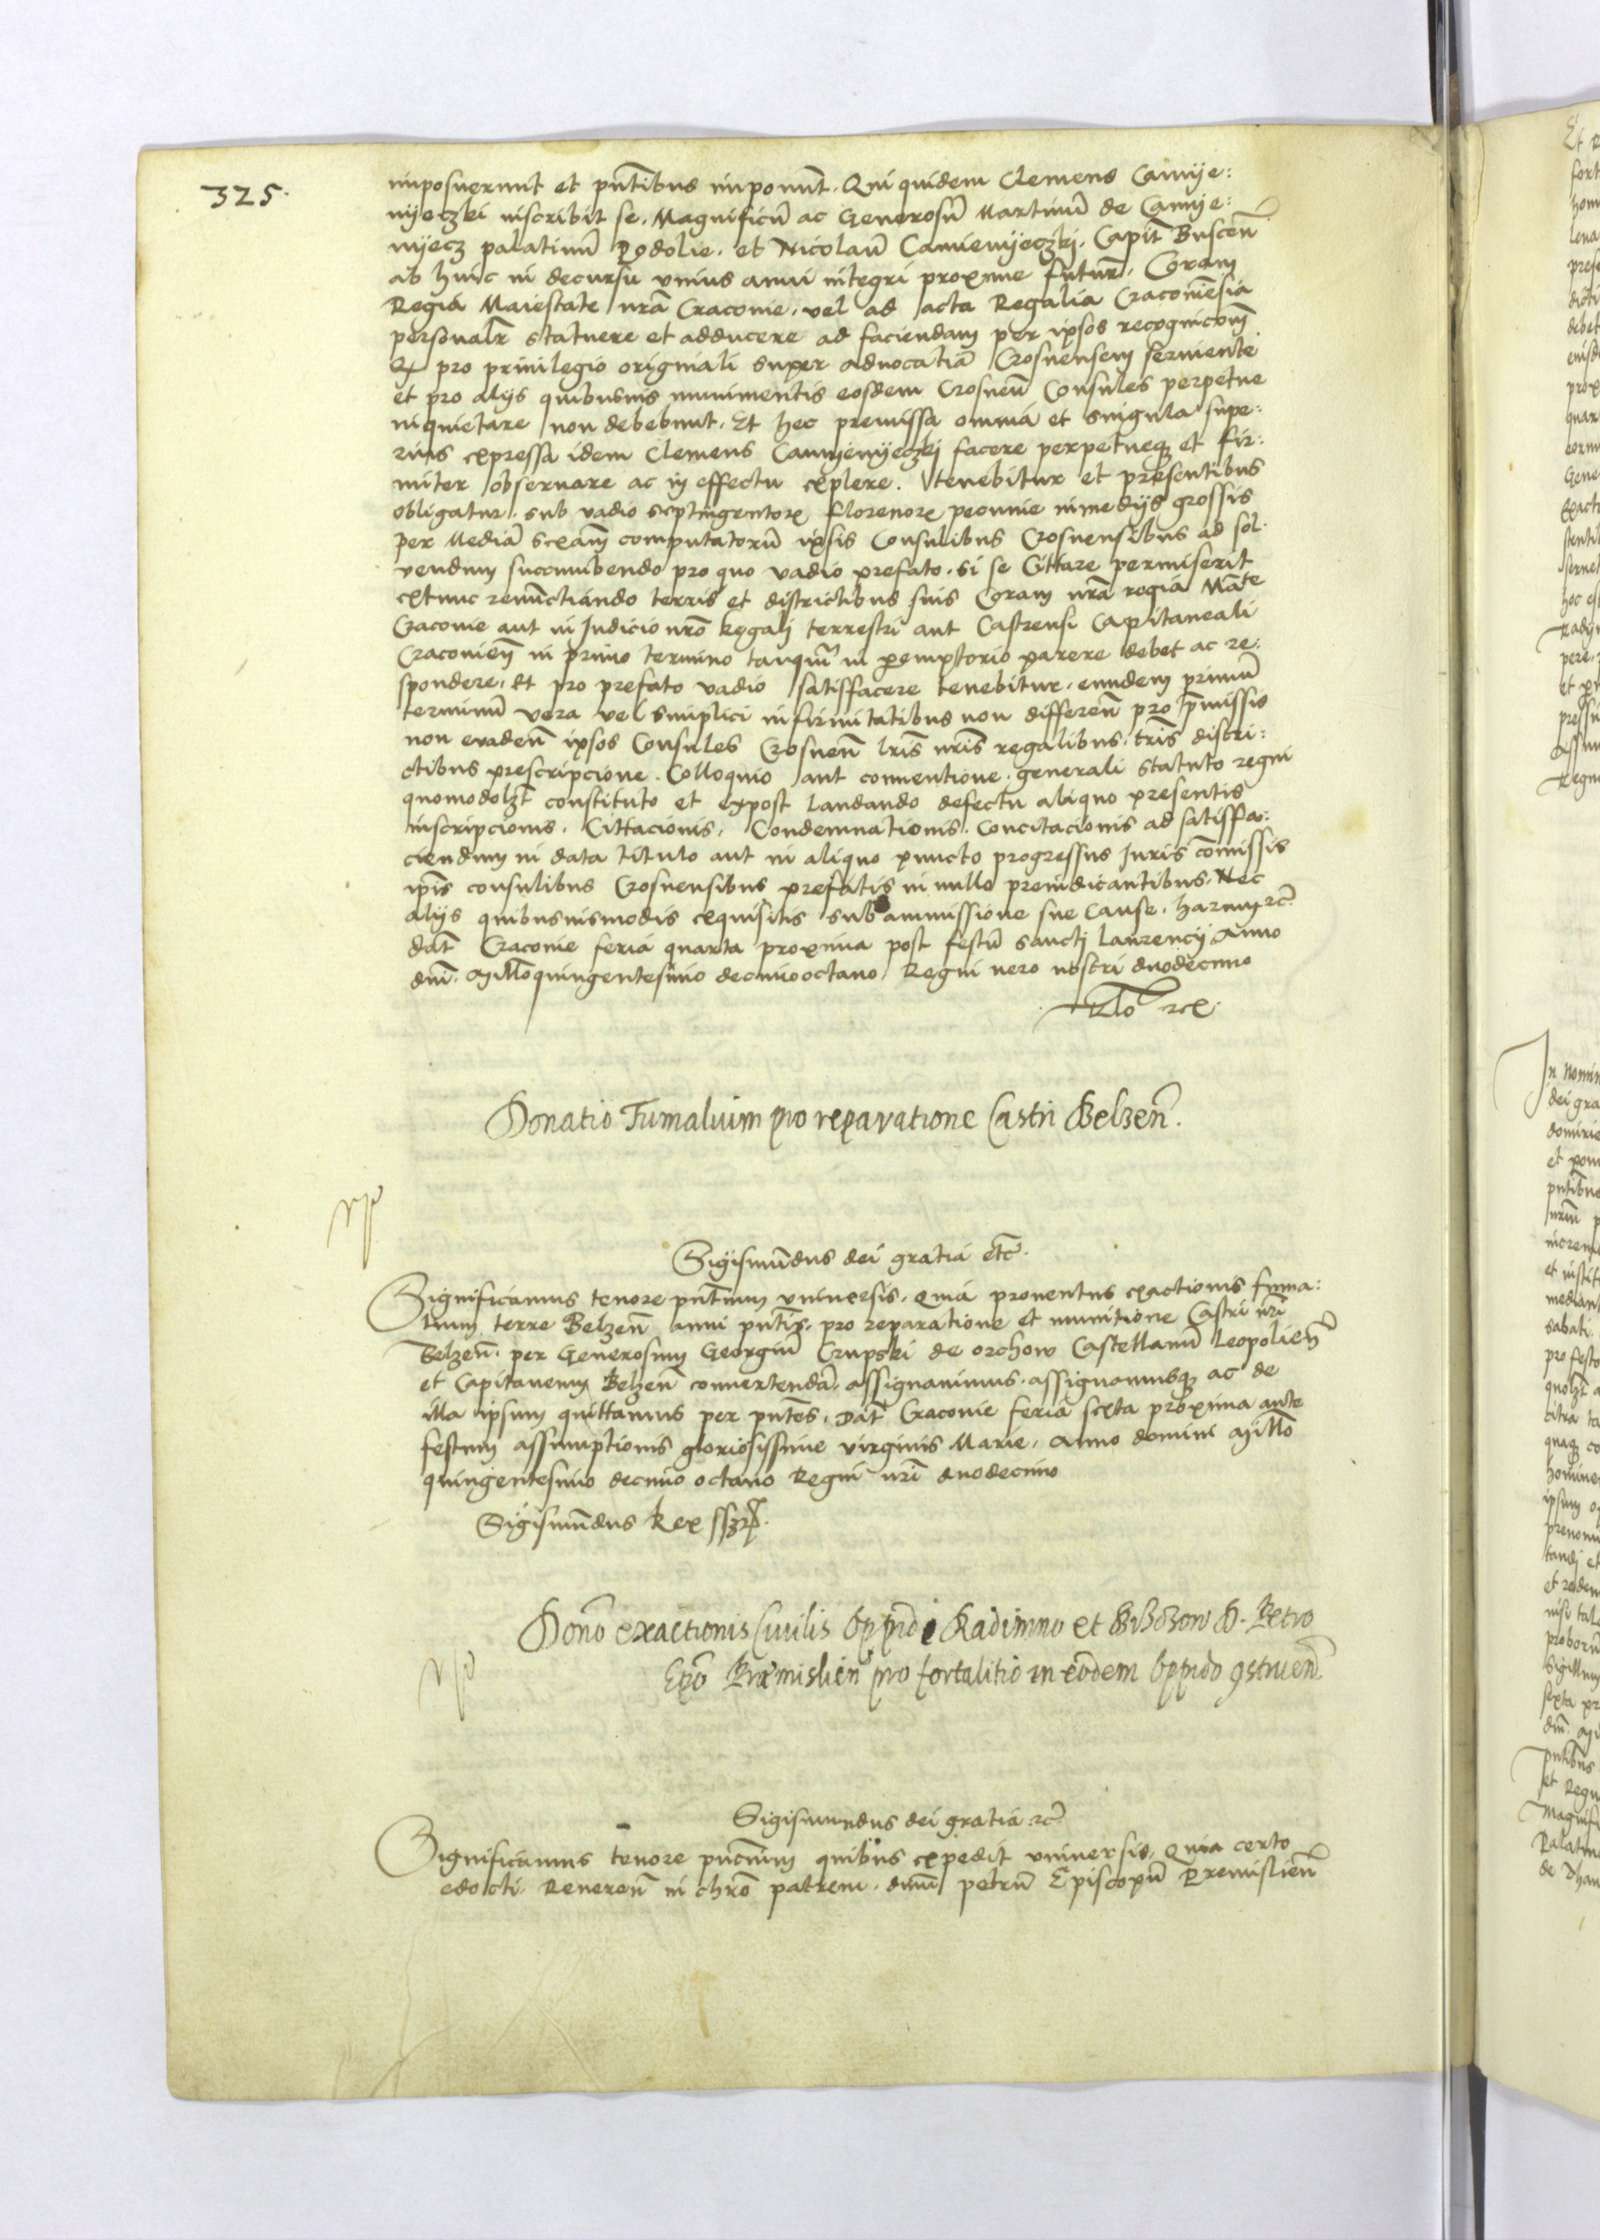 325.
imposuerunt et pn̄tibus imponunt. Qui quidem Clemens Camye:
nyeczki inscribit se. Magnificū ac Generosū Martinū de Camye:
nyecz palatinū Podolie. et Nicolaū Camienyeczkj. Capit̄ Buscen̄
ab hinc in decursu vnius anni integri proxime futurī. Coram
Regia Maiestate nrā Cracouie. vel ad acta Regalia Cracouiēsia
personalr̄ statuere et adducere ad faciendam per ipsos recognicōm̄
Q pro priuilegio originali super aduocatiā Crosnensem seruiente
et pro alijs quibusuis munimentis eosdem Crosnen̄ Consules perpetue
inquietare non debebunt. Et hec premissa omnia et singula supe:
rius expressa idem Clemens Camyenyeczkj facere perpetueqz et fir:
miter obseruare ac in effectu explere. tenebitur et presentibus
obligatur. sub vadio septingentorꝝ florenorꝝ pecunie in medijs grossis
per Mediā sexam̄ computatorū ipsis Consulibus Crosnensibus ad sol
uendum succumbendo pro quo vadio prefato. si se Cittare permiserit
extunc renūctiando terris et districtibus suis Coram nrā regia Mā̄te
Cracouie aut in Judicio nrō Regalj terrestri aut Castrensi Capitaneali
Cracouien̄ in primo termino tanqm̄ in peremptorio parere debet ac re:
spondere. Et pro prefato vadio satisfacere tenebitur. eundem primū
terminū vera vel simplici infirmitatibus non differen̄ pro p̄missis
non euaden̄ ipsos Consules Crosnen̄ lr̄is nr̄is regalibus. tr̄is distri:
ctibus prescripcione. Colloquio aut conuentione. generali statuto regni
quomodolzt constituto et expost laudando defectu aliquo presentis
inscripcionis. Cittacionis. Condemnationis. Concitacionis ad satisfa:
ciendum in data titulo aut in aliquo puncto progressus Juris cōmissis
ip̄is consulibus Crosnensibus prefatis in nullo preiudicantibus. Nec
alijs quibusuismodis exquisitis sub ammissione sue Cause. harum ꝛc̄
dat̄ Cracouie feria quarta proxima post festū sancti laurencij Anno
dnī. Millo quingentesimo decimooctauo. Regni vero nostri duodecimo
Rlō ꝛcꝫ.
Donatio Fumalium pro reparatione Castri Belzen̄.
Sigismūdus dei gratia etc̄.
Significamus tenore pn̄tium vniuersis. quia prouentus exactionis fuma:
lium terre Belzen̄ anni pn̄tis. pro reparatione et munitione Castri nr̄i
Belzen̄. per Generosum Georgiū Crupski de orchow Castellanū Leopolien̄
et Capitaneum Belzen̄ conuertendā. assignauimus. assignamusqz ac de
illa ipsum quittamus per pn̄tes. Dat̄ Cracouie feria sexta proxima ante
festum assumptionis gloriosissime virginis Marie. Anno domini Millo
quingentesimo decimo octauo Regni nr̄i duodecimo
Sigismūdus Rex sszr.
Donō exactionis Ciuilis Oppidi Radimno et Brzozow D. Petro
Epō Præmislien̄ pro fortalitio in eodem Oppido ꝯstruen̄
Sigismundus dei gratia ꝛc̄
Significamus tenore pn̄cium quibus expedit vniuersis. Quia certo
edocti. Reueren̄ in chr̄o patrem. dnm̄ petrū Episcopū Premislien̄